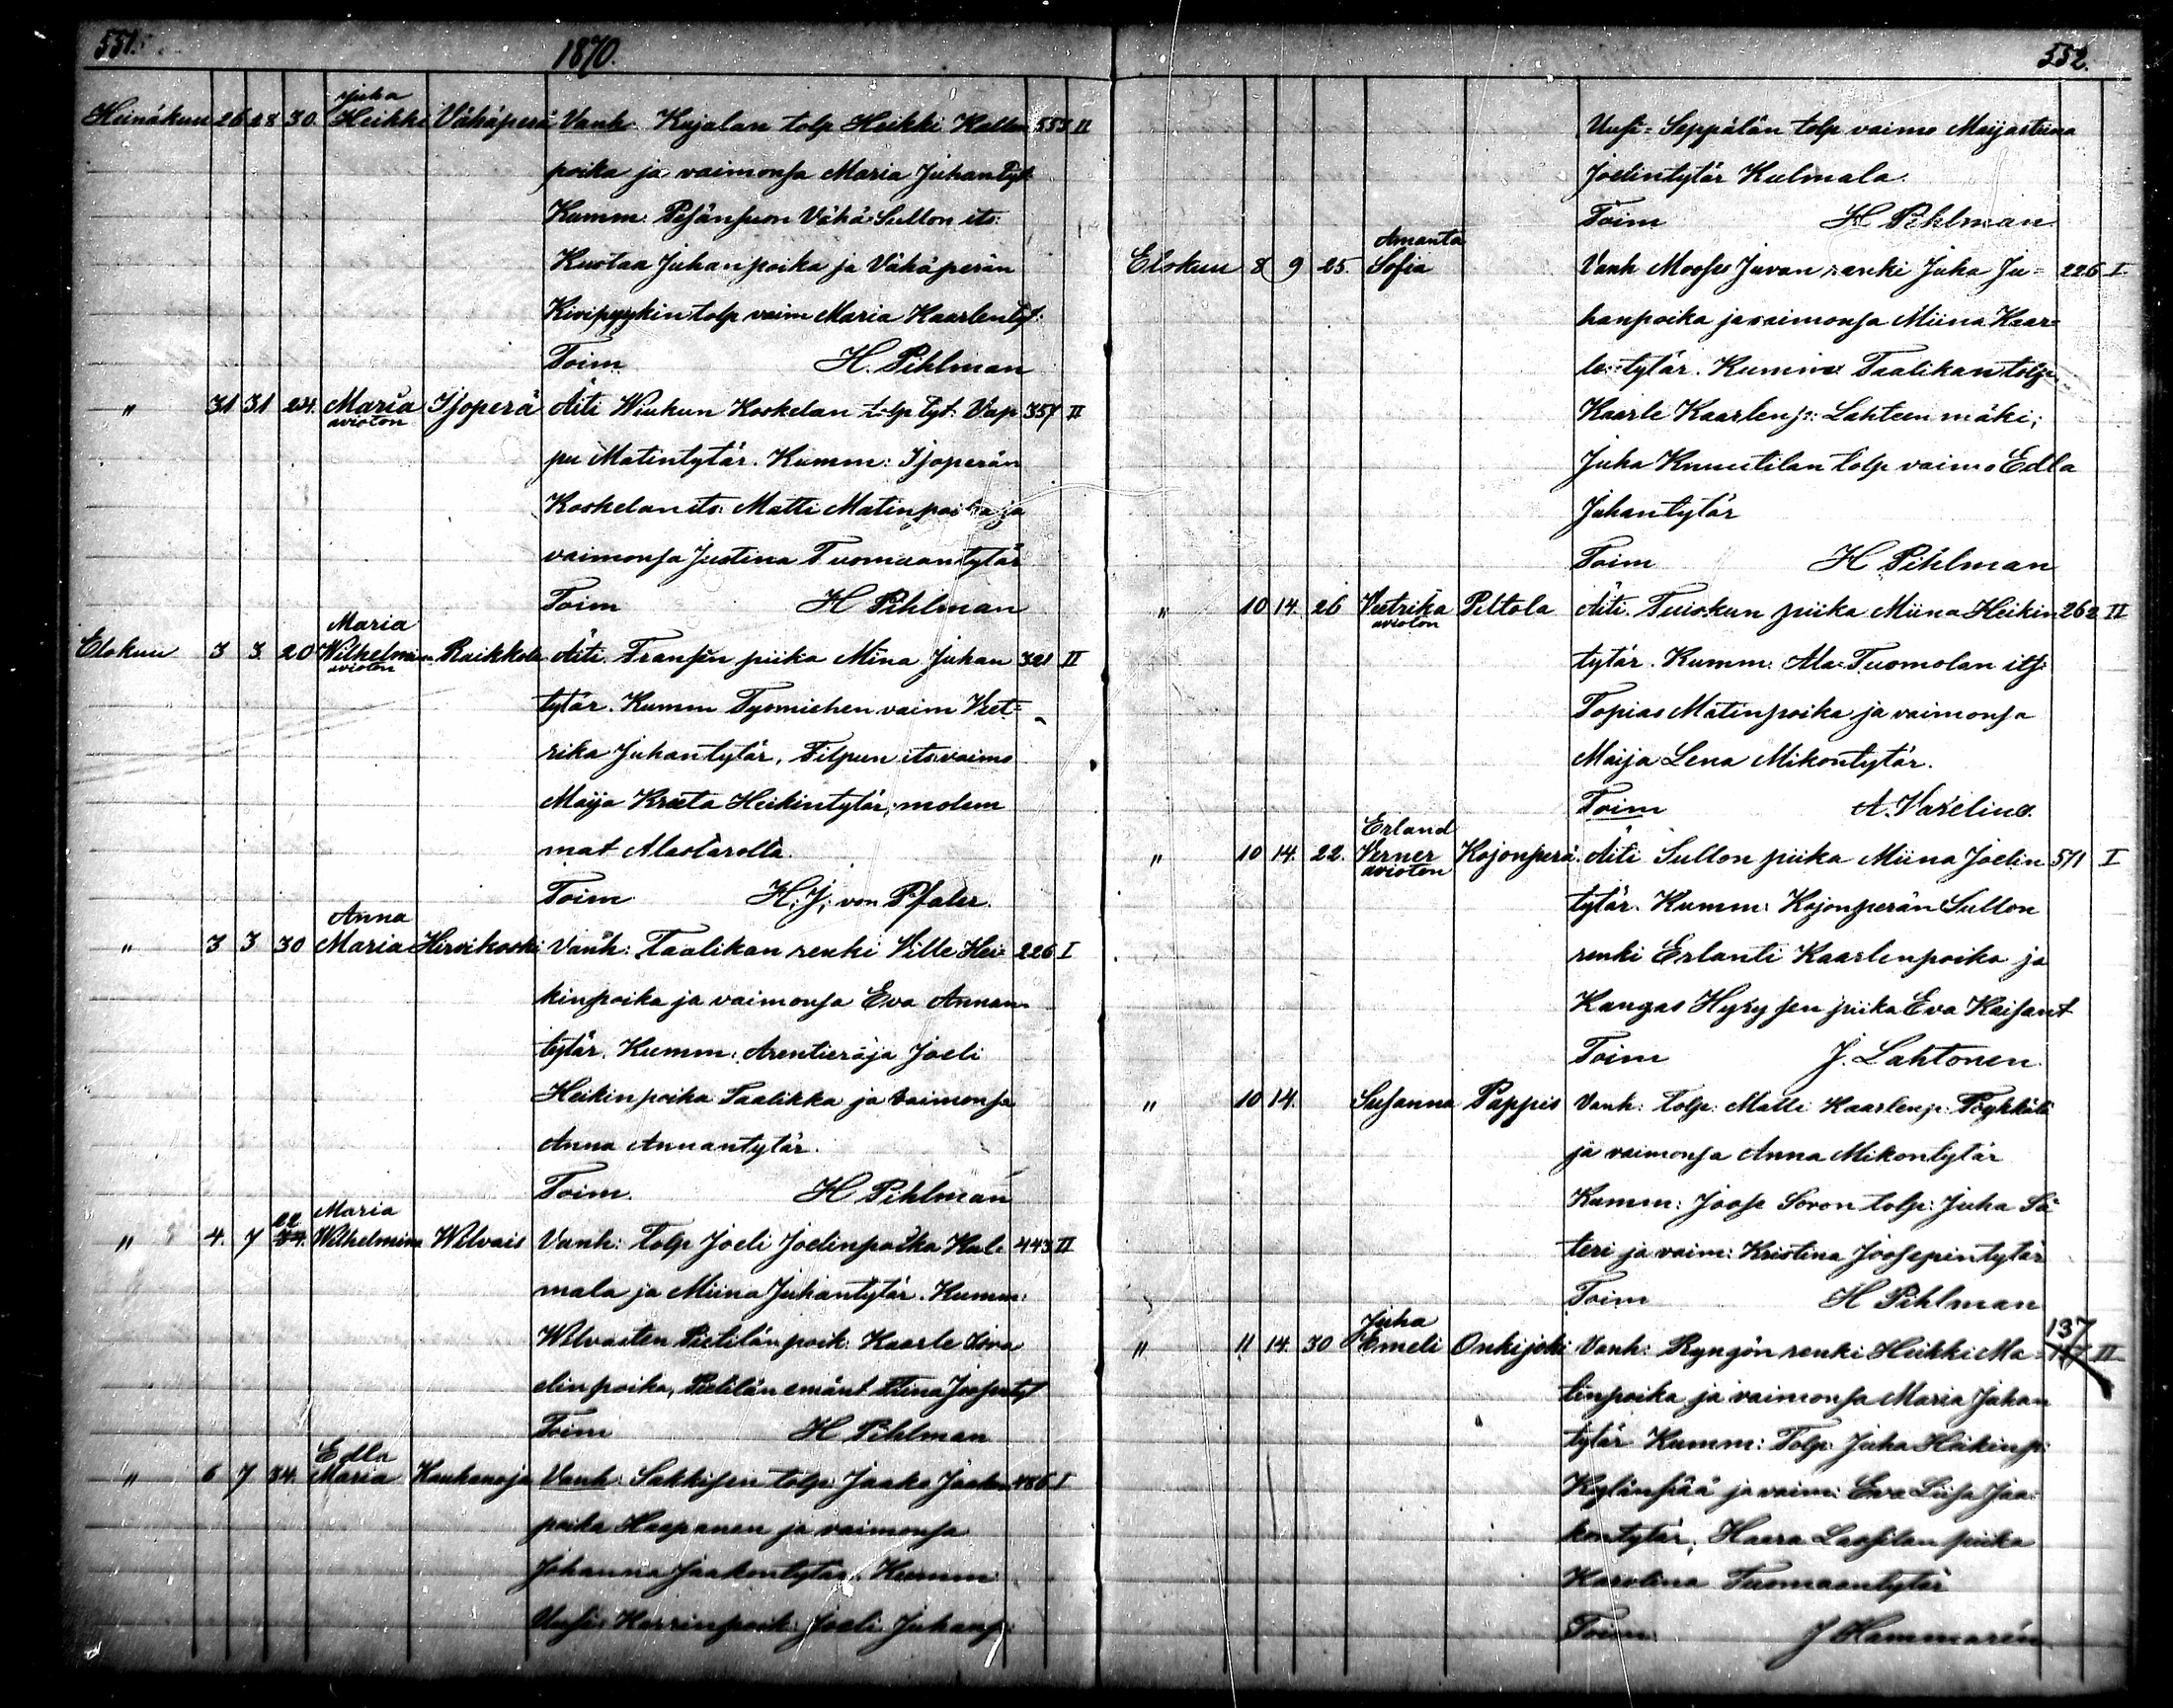 551.
1870.
Juha
Heinäkuu 26 28 30. Heikki Vähäperä Vanh. Kujalan tolp Heikki Kallen 553 II
poika ja vaimonsa Maria Juhantyt
Kumm: Pesänsuon Vähä-Sullon its:
Kustaa Juhanpoika ja Vähäperän
Kivipyykin tolp vaim Maria Kaarlentyt:
Toim H. Pihlman
" 31 31 24. Maria Isoperä Äiti Wiukun Koskelan tolp tyt: Vap 357 II
avioton
pu Matintytär. Kumm: Isoperän
Koskelan its: Matti Matinpoika ja
vaimonsa Justina Tuomaantytär
Toim H Pihlman
Maria
Elokuu 3 3 20 Wilhelmiin. Raikkola Äiti. Fransin piika Miina Juhan 321 II
avioton
tytär. Kumm Tyomiehen vaim Veet-
rika Juhantytär, Filpun its vaimo
Maija Kreeta Heikintytär, molem
mat Alastarolta.
Toim H. J. von Pfaler.
Anna
" 3 3 30 Maria Hirvikoski Vanh: Taalikan renki Ville Hei- 226 I
kinpoika ja vaimonsa Eva Annan
tytär. Kumm: Arentieraja Joeli
Heikinpoika Taalikka ja vaimonsa
Anna Annantytär.
Toim. H Pihlman
22 Maria
" 4. 7 34. Wilhelmina Wilvais Vanh: Tolp Joeli Joelinpoika Kul- 443 II
mala ja Miina Juhantytär. Kumm:
Wilvasten Pietilän poik: Kaarle Isra
elinpoika, Pietilän emänt Stina Joosentyt
Toim H Pihlman
Edla
" 6 7 34. Maria Kauhanoja Vanh: Sakkisen tolp: Jaako Jaakon 486 I
poika Haapanen ja vaimonsa
Johanna Jaakontytär. Kumm
Uusi-Harrinpoik: Joeli Juhanp:
552.
Uusi-Seppälän tolp vaimo Maijastiina
Joelintytär Kulmala.
Toim H Pihlman
Amanta
Elokuu 8 9 25. Sofia Vanh Mooses Juvan renki Juha Ju- 226 I
hanpoika ja vaimonsa Miina Kaar-
lentytär. Kumm: Taalikan tolp
Kaarle Kaarlenp: Lahteenmäki;
Juha Knuutilan tolp vaimo Edla
Juhantytär
Toim H Pihlman
" 10 14. 26 Veetrika Peltola Äiti. Tuiskun piika Miina Heikin 262 II
avioton
tytär. Kumm: Ala-Tuomolan its:
Topias Matinpoika ja vaimonsa
Maija Lena Mikontytär.
Toim A. Vaselius.
Erland
" 10 14. 22. Verner Kojonperä. Äiti Sullon piika Miina Joelin 571 I
avioton
tytär. Kumm: Kojonperän Sullon
renki Erlanti Kaarlenpoika ja
Kangas Hyrysen piika Eva Kaisant
Toim J. Lahtonen.
" 10 14. Susanna Pappis Vanh: Tolp: Matti Kaarlenp: Pöykkälä
ja vaimonsa Anna Mikontytär
Kumm: Joose Soron tolp: Juha Sä
teri ja vaim: Kristina Joosepintytär
Toim H Pihlman
Juha 137
" 11 14. 30 Emeli Onkijoki Vanh: Ryngön renki Heikki Ma- II
tinpoika ja vaimonsa Maria Juhan
tytär Kumm: Tolp: Juha Heikinp:
Kylänpää ja vaim: Eva Liisa Jaa-
kontytär, Haara Lassilan piika
Karolina Tuomaantytär
Toim: J Hammarén